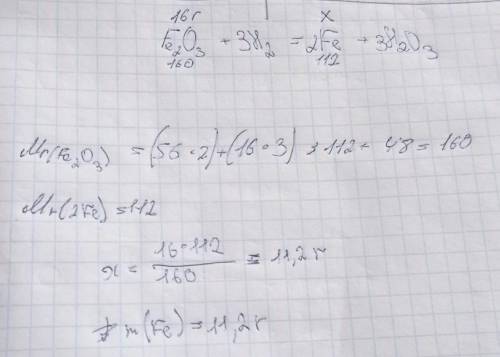 16г x
Fe₂O₃ + 3H₂ = 2Fe + 3H₂O₃
160 112
Mr(Fe₂O₃) = (56·2)+(16·3) = 112 + 48 = 160
Mr(2Fe) = 112
x = 16·112 / 160 = 11,2 г
m(Fe) = 11,2 г